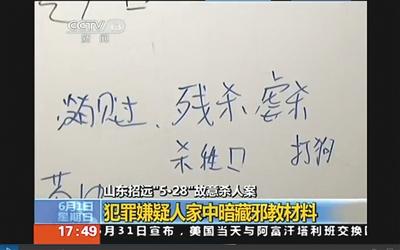 CCTV 13
新闻
见过, 残杀 虐杀
杀牲口 打狗
山东招远“5·28”故意杀人案
6月1日
星期日
犯罪嫌疑人家中暗藏邪教材料
17:49 月31日宣布，美国当天与阿富汗塔利班交换